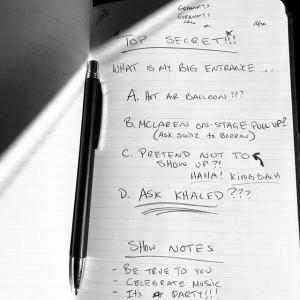 GRAMMYS
GRAMMYS
TOP SECRET!!!
WHAT IS MY BIG ENTRANCE...
A. HOT AIR BALLOON???
B. MCLAREN ON-STAGE PULL UP?
(ASK SWIZZ TO BORROW)
C. PRETEND NOT TO
SHOW UP?!
HAHA! KINGBACH
D. ASK KHALED???
SHOW NOTES
- BE TRUE TO YOU
- CELEBRATE MUSIC
- ITS A PARTY!!!